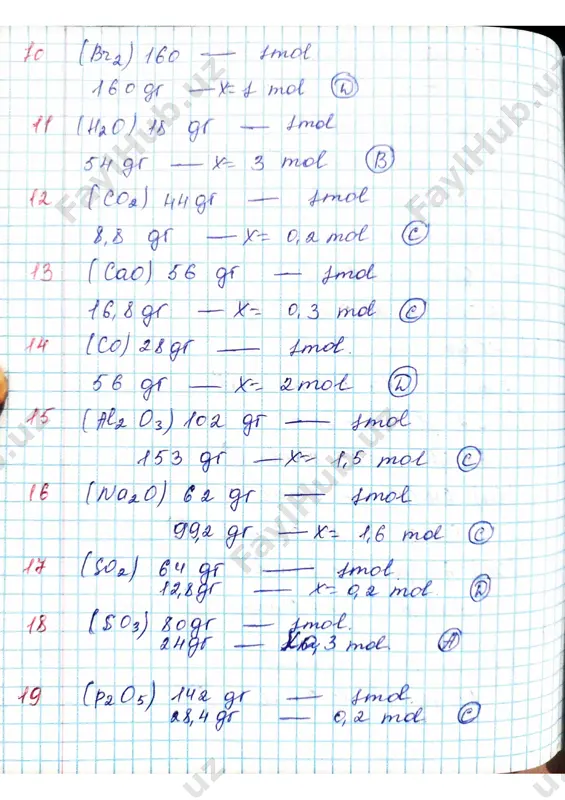 10 (Br2) 160 — 1mol
160 gr — x= 1 mol D
11 (H2O) 18 gr — 1mol
54 gr — x= 3 mol B
12 (CO2) 44 gr — 1mol
8,8 gr — x= 0,2 mol C
13 (CaO) 56 gr — 1mol
16,8 gr — x= 0,3 mol C
14 (CO) 28 gr — 1mol.
56 gr — x= 2 mol D
15 (Al2O3) 102 gr — 1mol
153 gr — x= 1,5 mol C
16 (Na2O) 62 gr — 1mol
99,2 gr — x= 1,6 mol C
17 (SO2) 64 gr — 1mol.
12,8 gr — x= 0,2 mol D
18 (SO3) 80 gr — 1mol.
24 gr — 0,3 mol. A
19 (P2O5) 142 gr — 1mol.
28,4 gr — 0,2 mol C
FaylHub.uz
FaylHub.uz
FaylHub.uz
uz
uz